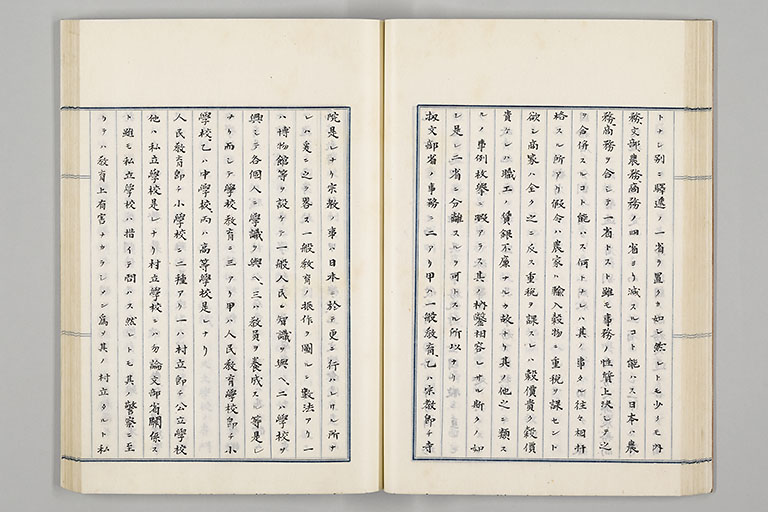 トナシ別ニ驛逓ノ一省ヲ置クカ如シ然レトモ少クモ内
務文部農務商務ノ四省ヨリ減スルコト能ハス日本ハ農
務商務ヲ合シテ一省トスト雖モ事務ノ性質上決シテ之
ヲ合併スルコト能ハス何トナレハ其ノ事タル往々相扞
格スル所アリ假令ハ農家ハ輸入穀物ニ重税ヲ課セント
欲シ商家ハ全ク之ニ反ス重税ヲ課スレハ穀價貴ク穀價
貴ケレハ職工ノ賃銀不廉ナルカ故ナリ其ノ他之ニ類ス
ルノ事例枚擧ニ暇アラス其ノ枘鑿相容レサル斯クノ如
シ是レ二省ニ分離スルヲ可トスル所以ナリ
扨文部省ノ事務ニ二アリ甲ハ一般教育、乙ハ宗教即チ寺
院是レナリ宗教ノ事ハ日本ニ於テ更ニ行ハレサル所ナ
レハ爰ニ之ヲ畧ス一般教育ノ振作ヲ圖ルニ數法アリ一
ハ博物館等ヲ設ケテ一般人民ニ智識ヲ與ヘ、二ハ學校ヲ
興シテ各個人ニ學識ヲ與ヘ、三ハ教員ヲ養成スル等是レ
ナリ而シテ學校教育ニ三アリ甲ハ人民教育學校即チ小
學校、乙ハ中學校、丙ハ高等學校是レナリ
人民教育即チ小學校ニ二種アリ一ハ村立即チ公立學校
他ハ私立學校是レナリ村立學校ニハ勿論文部省關係ス
ト雖モ私立學校ハ措イテ問ハス然レトモ其ノ警察ニ至
リテハ教育上有害ナカラシメン為ヲ其ノ村立タルト私